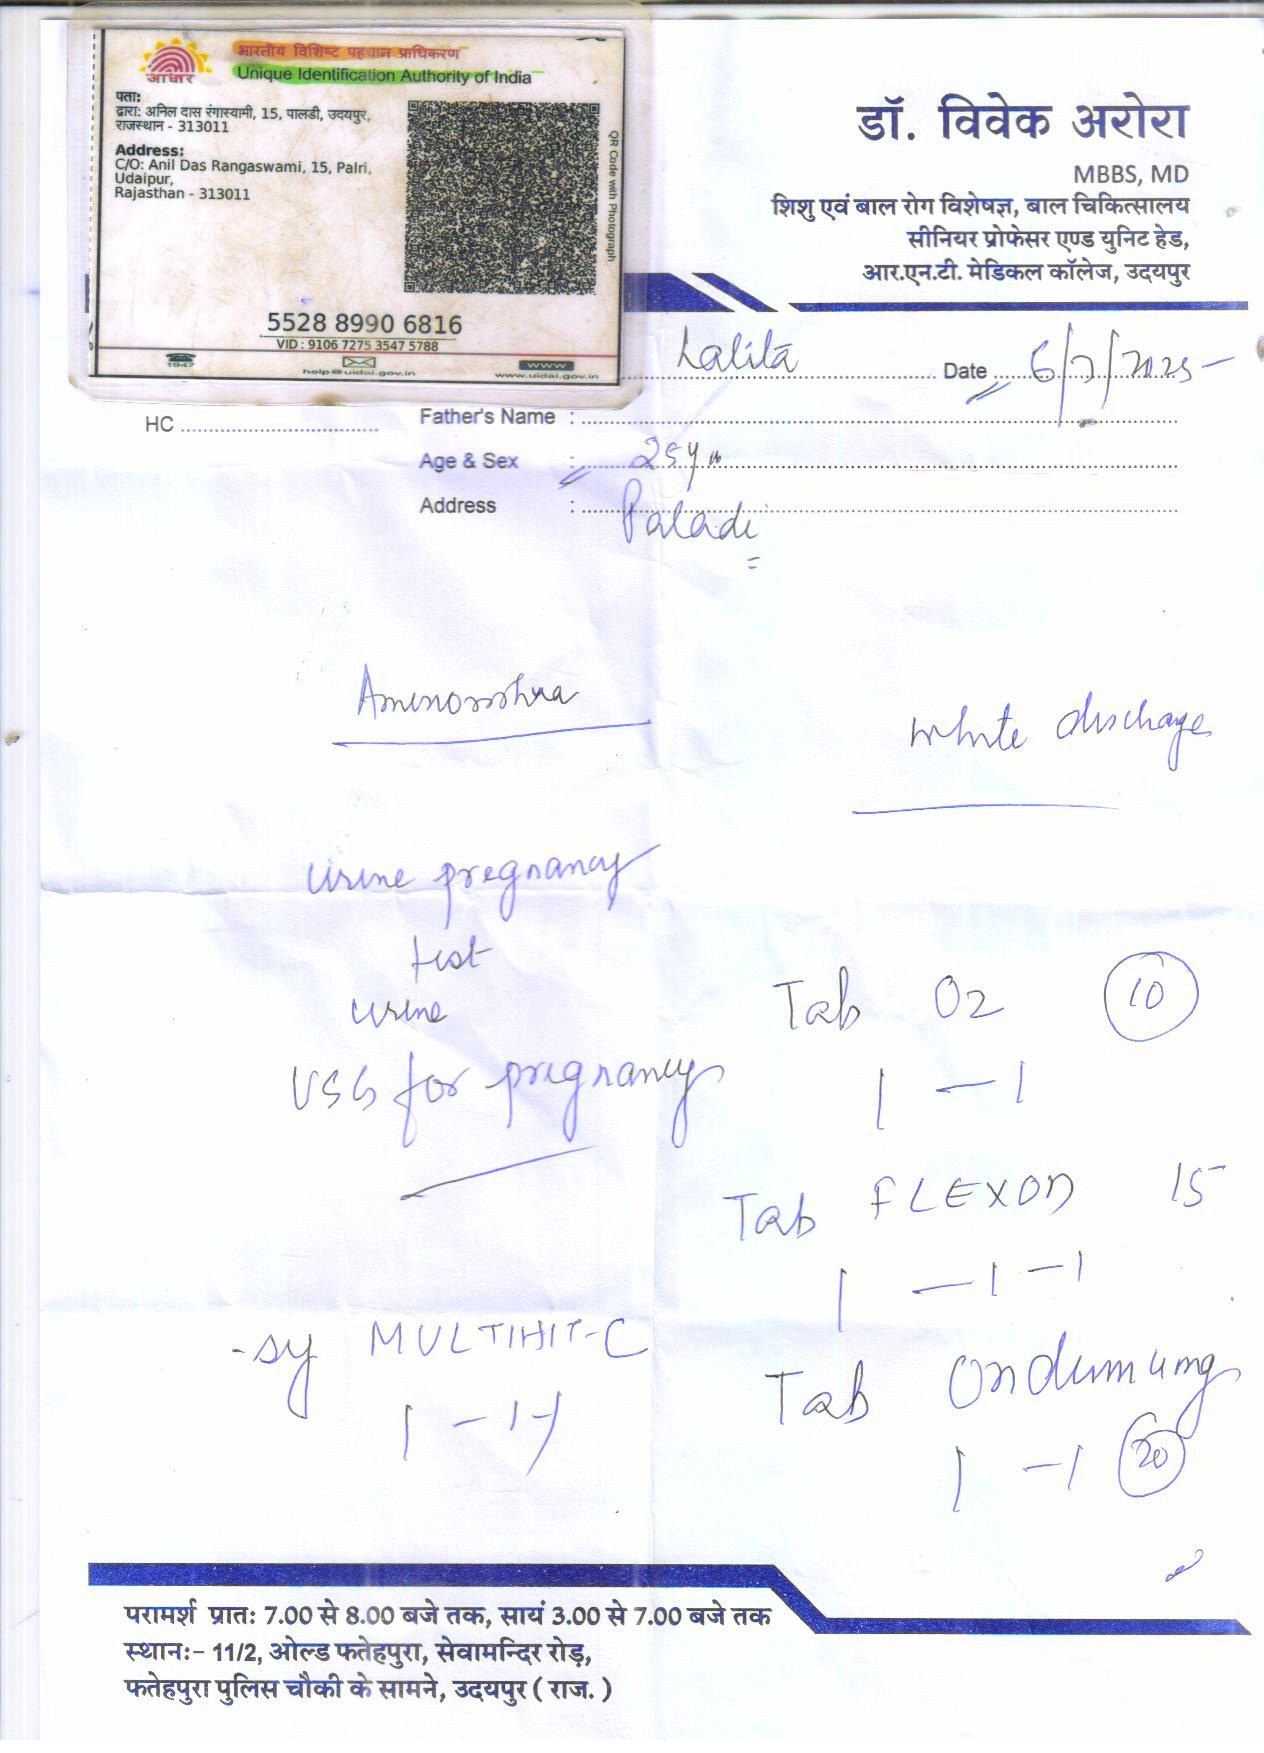 आधार
भारतीय विशिष्ट पहचान प्राधिकरण
Unique Identification Authority of India
पता:
द्वारा: अनिल दास रंगास्वामी, 15, पालडी, उदयपुर,
राजस्थान - 313011
Address:
C/O: Anil Das Rangaswami, 15, Palri,
Udaipur,
Rajasthan - 313011
QR Code with Photograph
5528 8990 6816
VID : 9106 7275 3547 5788
1947
help@uidai.gov.in
www
www.uidai.gov.in
डॉ. विवेक अरोरा
MBBS, MD
शिशु एवं बाल रोग विशेषज्ञ, बाल चिकित्सालय
सीनियर प्रोफेसर एण्ड युनिट हेड,
आर.एन.टी. मेडिकल कॉलेज, उदयपुर
Lalita Date 6/7/2025
HC Father's Name :
Age & Sex : 25y
Address : Paladi
Amenorrhea
White discharge
Urine pregnancy
test
urine
USG for pregnancy
Tab O2 10
1 - 1
Tab FLEXON 15
1 - 1 - 1
Sy MULTIHIT-C
1 - 1
Tab Ondem 4mg
1 - 1 20
परामर्श प्रातः 7.00 से 8.00 बजे तक, सायं 3.00 से 7.00 बजे तक
स्थानः- 11/2, ओल्ड फतेहपुरा, सेवामन्दिर रोड़,
फतेहपुरा पुलिस चौकी के सामने, उदयपुर ( राज. )